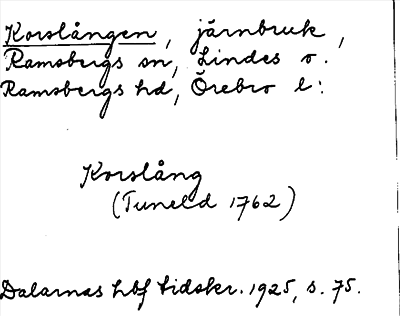 Korslången, järnbruk,
Ramsbergs sn, Lindes o.
Ramsbergs hd, Örebro l:
Korslång
(Tuneld 1762)
Dalarnas hbf tidskr. 1925, s. 75.